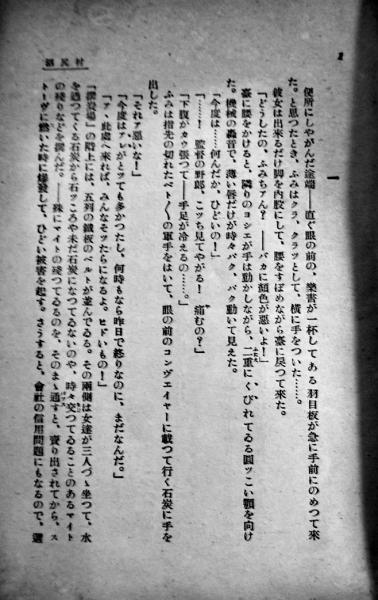 沼尻村
2
一
便所にしやがんだ途端――直ぐ眼の前の、樂書が一杯してある羽目板が急に手前にのめつて來
た。と思つたとき、ふみはクラ、クラッとして、橫に手をついた……。
彼女は出來るだけ脚を內股にして、腰をすぼめながら臺に戾つて來た。
「どうしたの、ふみちァん？　――バカに顏色が惡いよ！」
臺に腰をかけると、隣りのヨシエが手は動かしながら、二重にくびれてゐる圓ッこい顎を向け
た。機械の轟音で、薄い唇だけが時々パク、パク動いて見えた。
「今度は……何んだか、ひどいの！」
「……！　監督の野郞、こッち見てやがる！　痛むの？」
「下腹がカウ張つて――手足が冷えるの……。」
ふみは指先の切れたベト〱の軍手をはいて、眼の前のコンヴェイヤーに載つて行く石炭に手を
出した。
「それァ惡いな！」
「今度はァレがとッても多かつたし、何時もなら昨日で終りなのに、まだなんだ。」
「ァ、此處へ來れば、みんなそッたらになるよ。ヒドいもの！」
「撰炭場」の階上には、五列の鐵板のベルトが並んでゐる。その兩側は女達が三人づゝ坐つて、水
を通つてくる石炭から石ッころや未だ石炭になつてゐないのや、時々交つてゐることのあるマイト
の殘りなどを撰んだ。――殊にマイトの殘つてゐるのを、そのまゝ通すと、賣り出されてから、ス
トーヴに燃いた時に爆發して、ひどい被害を起す。さうすると、會社の信用問題にもなるので、選